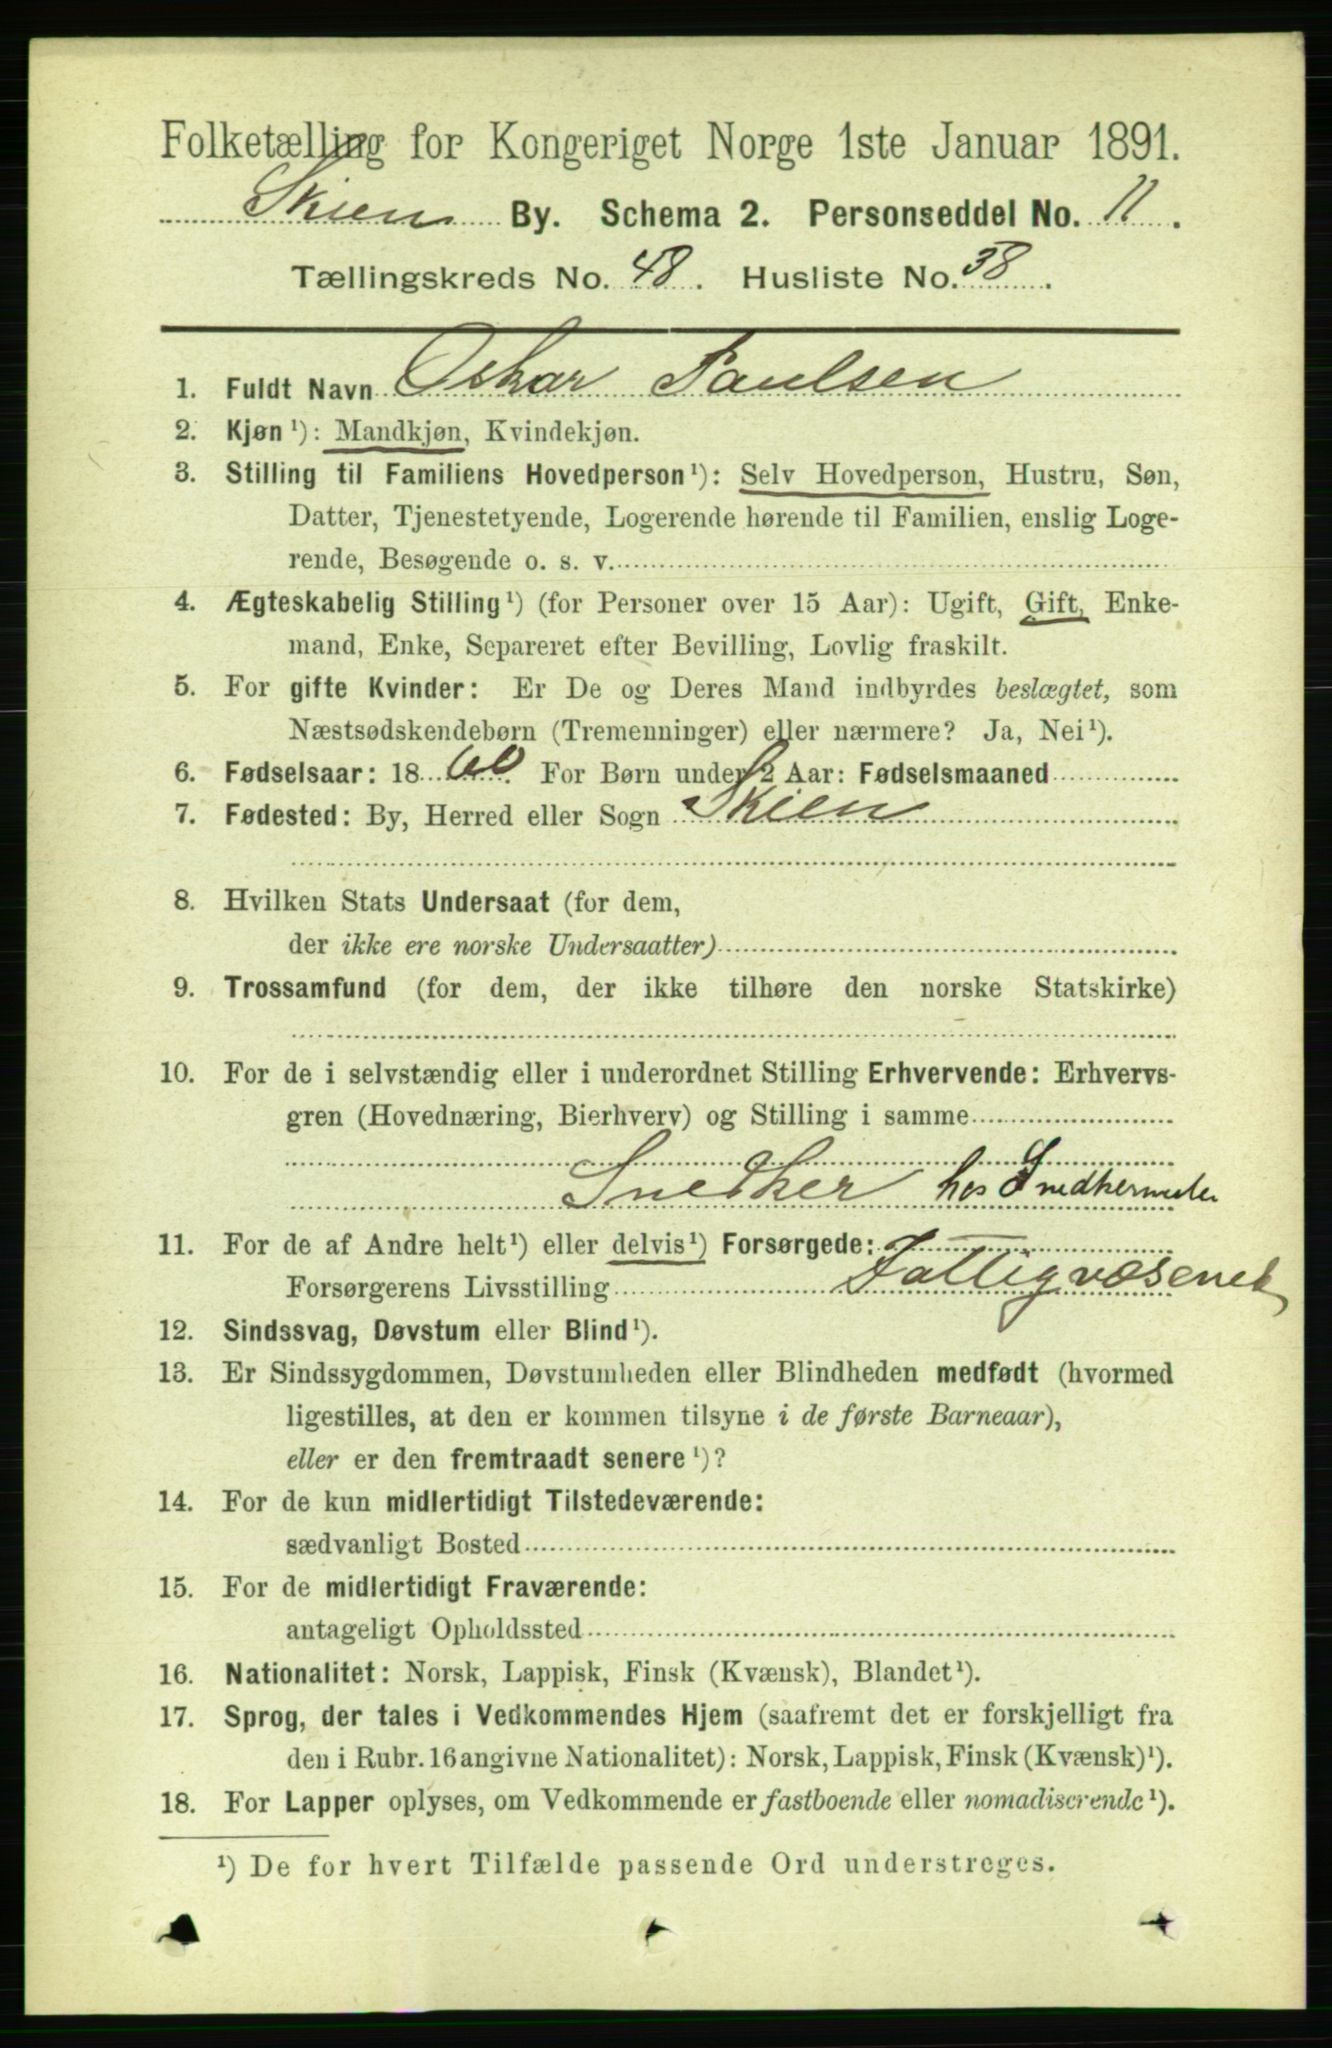 Folketælling for Kongeriget Norge 1ste Januar 1891.
Skien By. Schema 2. Personseddel No. 11.
Tællingskreds No. 48. Husliste No. 38.
1. Fuldt Navn Oskar Paulsen
2. Kjøn¹): Mandkjøn, Kvindekjøn.
3. Stilling til Familiens Hovedperson¹): Selv Hovedperson, Hustru, Søn,
Datter, Tjenestetyende, Logerende hørende til Familien, enslig Loge-
rende, Besøgende o. s. v.
4. Ægteskabelig Stilling¹) (for Personer over 15 Aar): Ugift, Gift, Enke-
mand, Enke, Separeret efter Bevilling, Lovlig fraskilt.
5. For gifte Kvinder: Er De og Deres Mand indbyrdes beslægtet, som
Næstsødskendebørn (Tremenninger) eller nærmere? Ja, Nei¹).
6. Fødselsaar: 1860. For Børn under 2 Aar: Fødselsmaaned
7. Fødested: By, Herred eller Sogn Skien
8. Hvilken Stats Undersaat (for dem,
der ikke ere norske Undersaatter)
9. Trossamfund (for dem, der ikke tilhøre den norske Statskirke)
10. For de i selvstændig eller i underordnet Stilling Erhvervende: Erhvervs-
gren (Hovednæring, Bierhverv) og Stilling i samme
Snedker hos Snedkermester
11. For de af Andre helt¹) eller delvis¹) Forsørgede:
Forsørgerens Livsstilling Fattigvæsenet
12. Sindssvag, Døvstum eller Blind¹).
13. Er Sindssygdommen, Døvstumheden eller Blindheden medfødt (hvormed
ligestilles, at den er kommen tilsyne i de første Barneaar),
eller er den fremtraadt senere¹)?
14. For de kun midlertidigt Tilstedeværende:
sædvanligt Bosted
15. For de midlertidigt Fraværende:
antageligt Opholdssted
16. Nationalitet: Norsk, Lappisk, Finsk (Kvænsk), Blandet¹).
17. Sprog, der tales i Vedkommendes Hjem (saafremt det er forskjelligt fra
den i Rubr. 16 angivne Nationalitet): Norsk, Lappisk, Finsk (Kvænsk)¹).
18. For Lapper oplyses, om Vedkommende er fastboende eller nomadiserende¹).
¹) De for hvert Tilfælde passende Ord understreges.